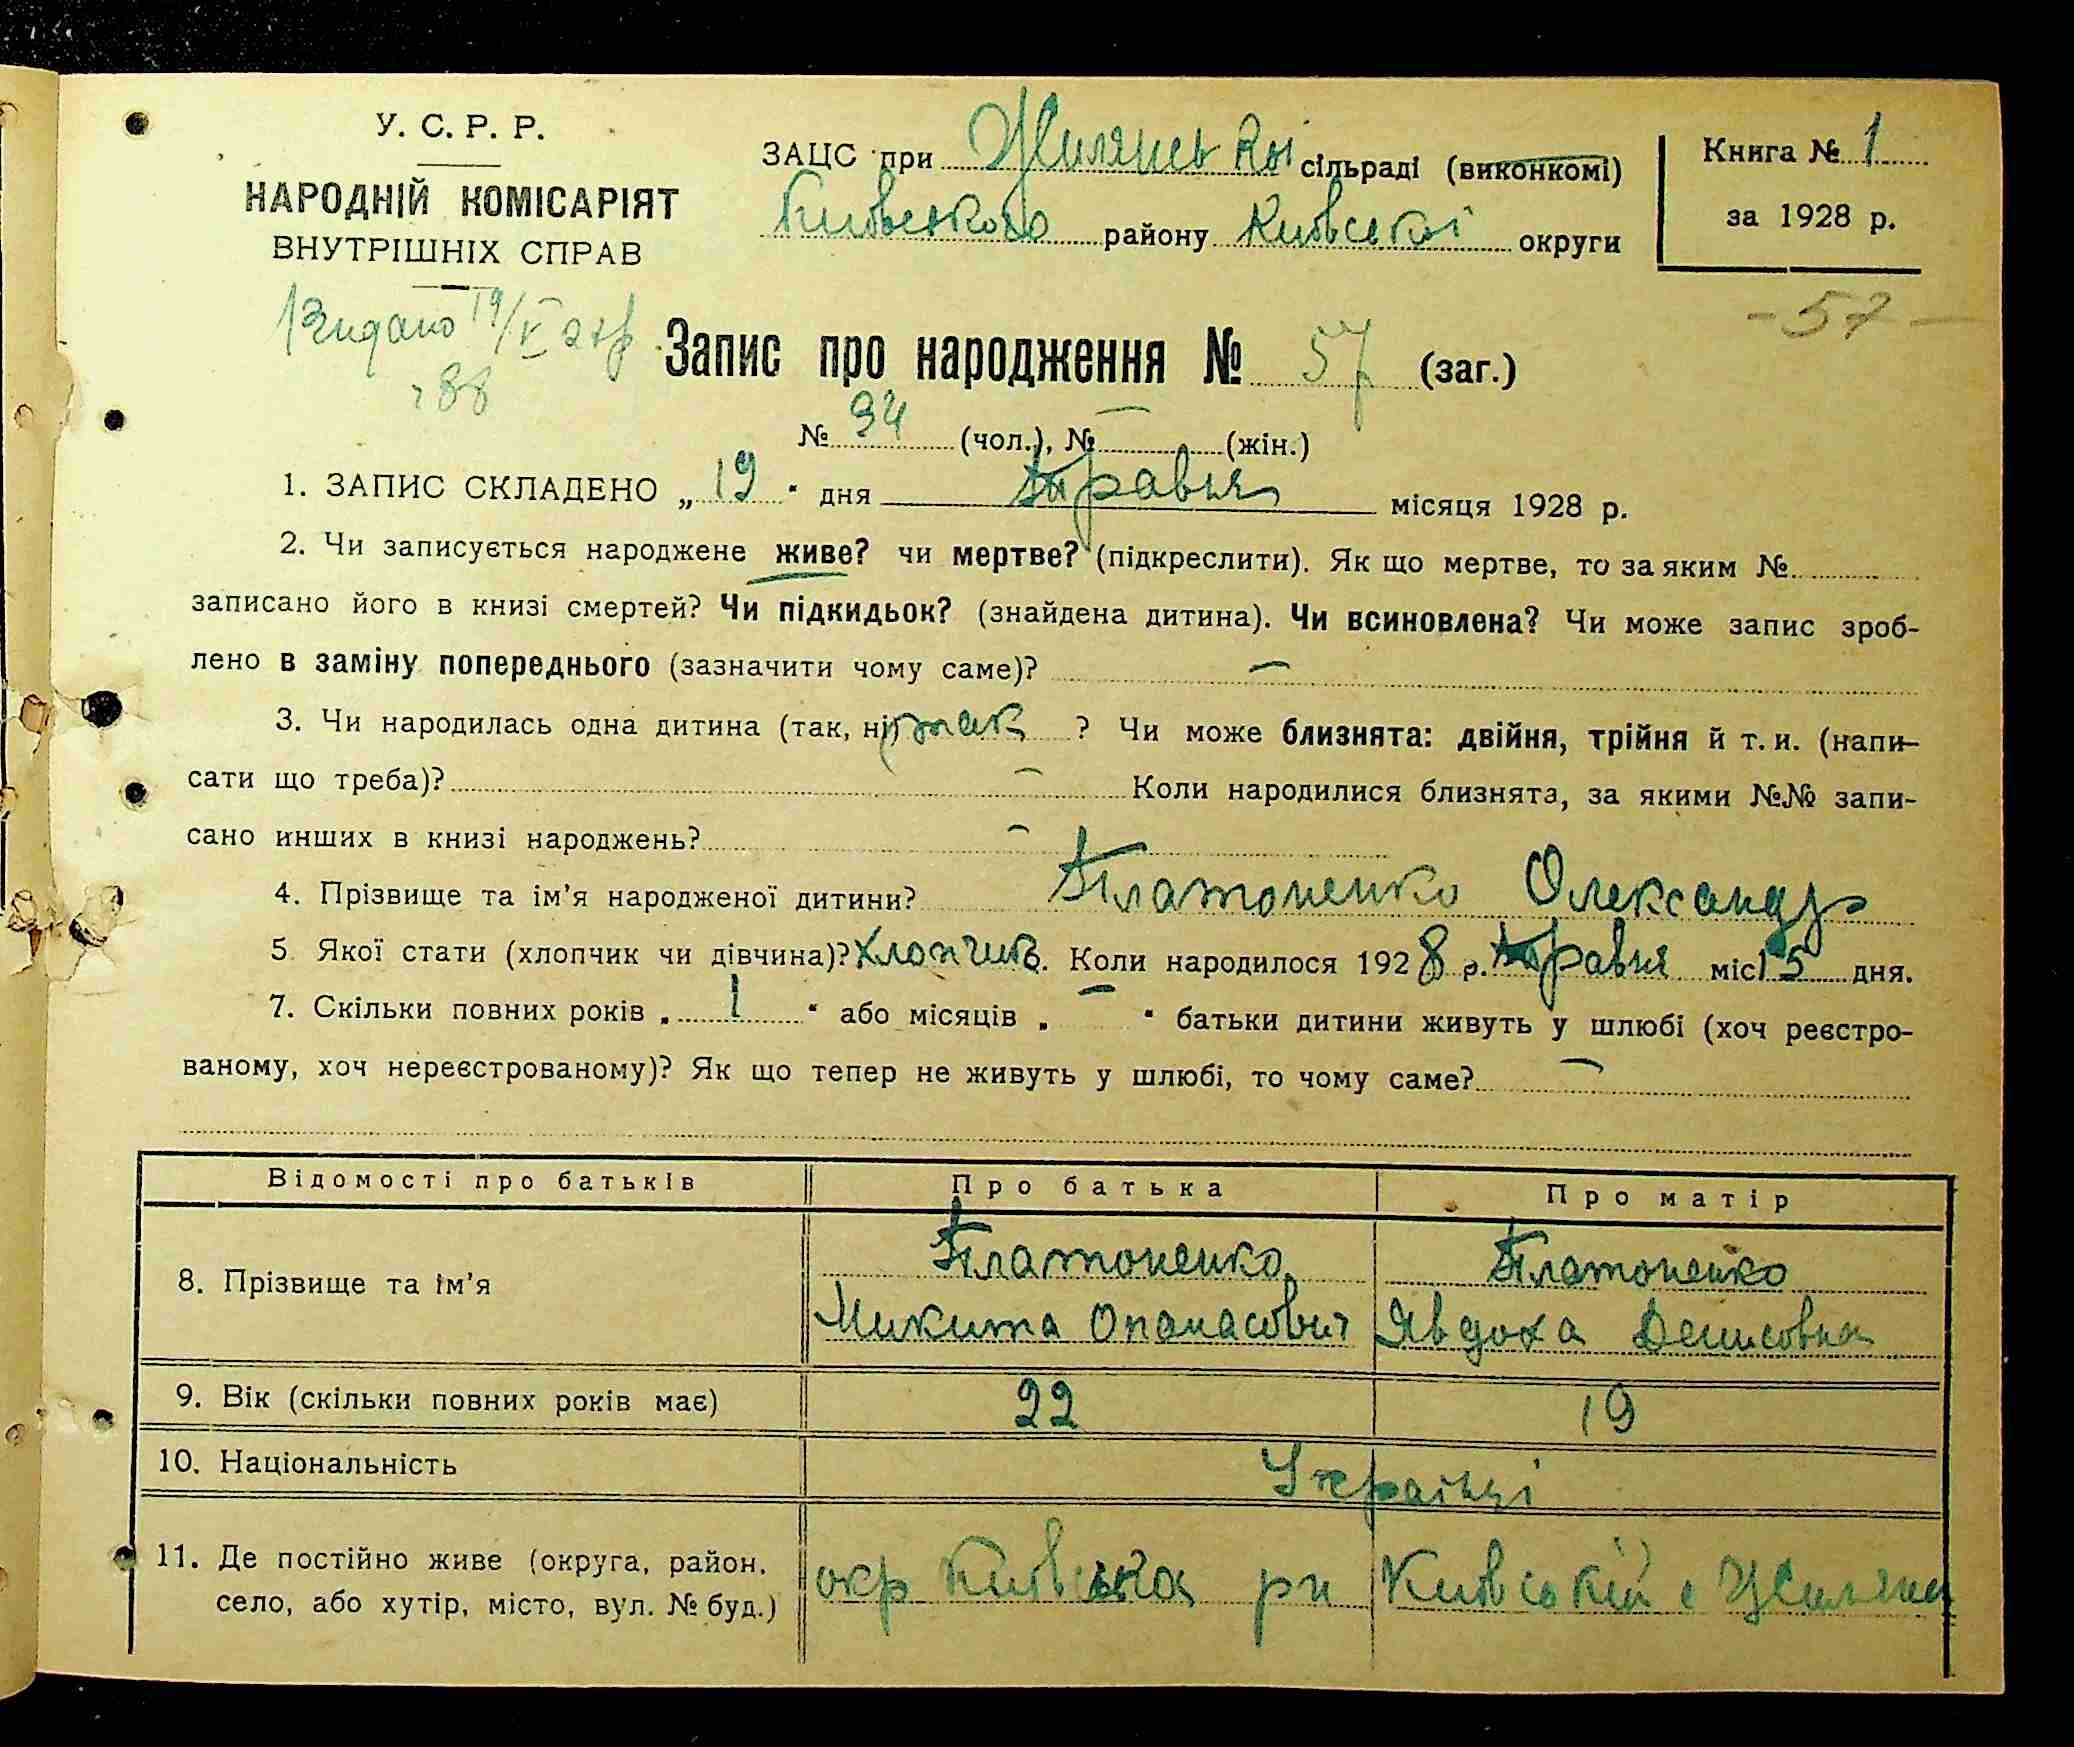 У. С. Р. Р.
НАРОДНІЙ КОМІСАРІЯТ
ВНУТРІШНІХ СПРАВ
ЗАЦС при Жилянської сільраді (виконкомі)
Київського району Київської округи
Книга № 1
за 1928 р.
Видано 19/V 28 р
- 57 -
Запис про народження № 57 (заг.)
№ 34 (чол.), № — (жін.)
1. ЗАПИС СКЛАДЕНО „ 19 “ дня травня місяця 1928 р.
2. Чи записується народжене живе? чи мертве? (підкреслити). Як що мертве, то за яким №
записано його в книзі смертей? Чи підкидьок? (знайдена дитина). Чи всиновлена? Чи може запис зроб-
лено в заміну попереднього (зазначити чому саме)? —
3. Чи народилась одна дитина (так, ні) так ? Чи може близнята: двійня, трійня й т. и. (напи-
сати що треба)? — Коли народилися близнята, за якими №№ запи-
сано инших в книзі народжень? —
4. Прізвище та ім’я народженої дитини? Платоненко Олександр
5 Якої стати (хлопчик чи дівчина)? хлопчик 6. Коли народилося 1928 р. травня міс 15 дня.
7. Скільки повних років „ 1 “ або місяців „ — “ батьки дитини живуть у шлюбі (хоч реєстро-
ваному, хоч нереєстрованому)? Як що тепер не живуть у шлюбі, то чому саме? —
Відомості про батьків Про батька Про матір
8. Прізвище та ім’я Платоненко Микита Опанасович Платоненко Явдоха Денисовна
9. Вік (скільки повних років має) 22 19
10. Національність Українці
11. Де постійно живе (округа, район, окр Київська рн Київській с Жиляни
село, або хутір, місто, вул. № буд.)